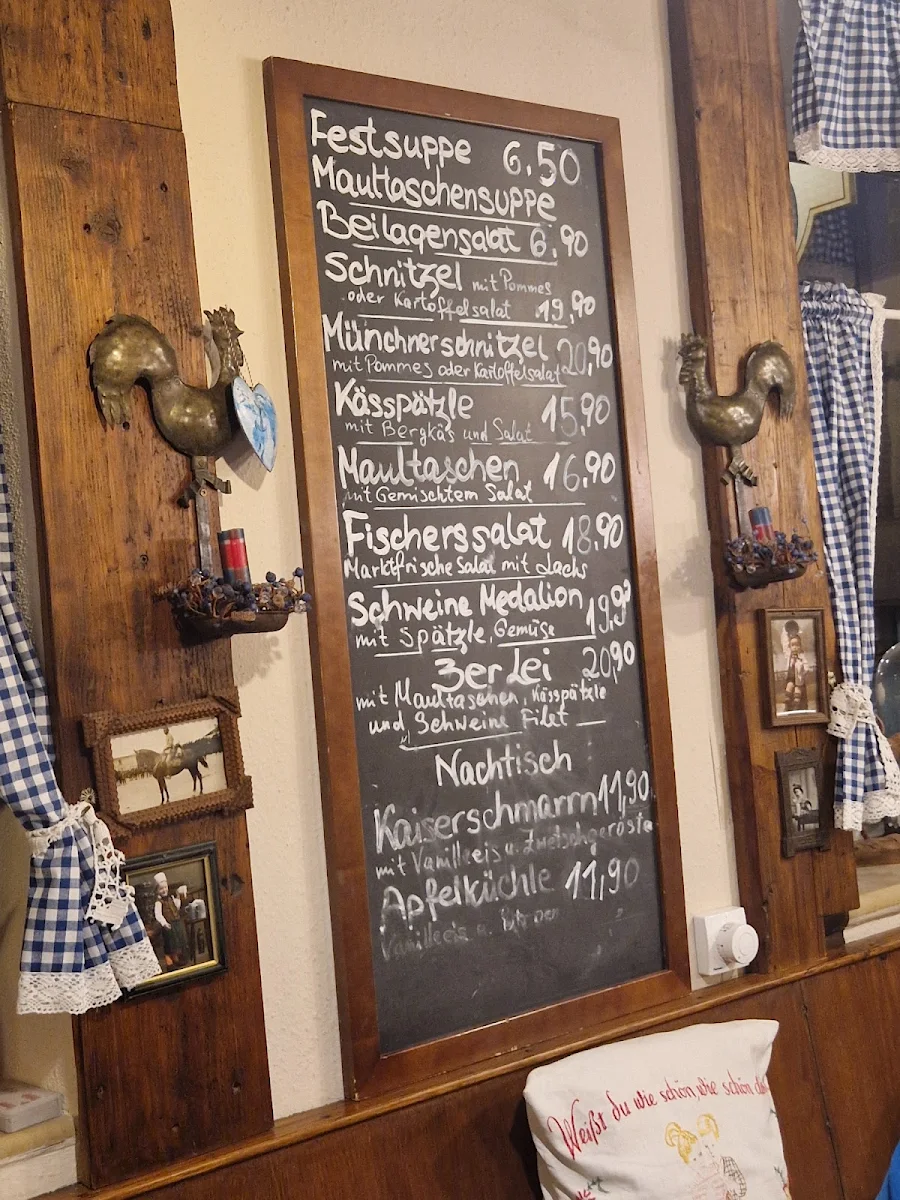 Festsuppe 6.50
Maultaschensuppe
Beilagensalat 6,90
Schnitzel mit Pommes
oder Kartoffelsalat 19,90
Münchnerschnitzel 20,90
mit Pommes oder Kartoffelsalat
Kässpätzle 15,90
mit Bergkäs und Salat
Maultaschen 16,90
mit Gemischtem Salat
Fischerssalat 18,90
Marktfrische Salat mit Lachs
Schweine Medalion 19,90
mit Spätzle, Gemüse
3erlei 20,90
mit Maultaschen, Kässpätzle
und Schweine Filet
Nachtisch
Kaiserschmarrn 11,90
mit Vanilleeis u. Zwetschgeröster
Apfelküchle 11,90
Vanilleeis u.
Weißt du wie schön, wie schön